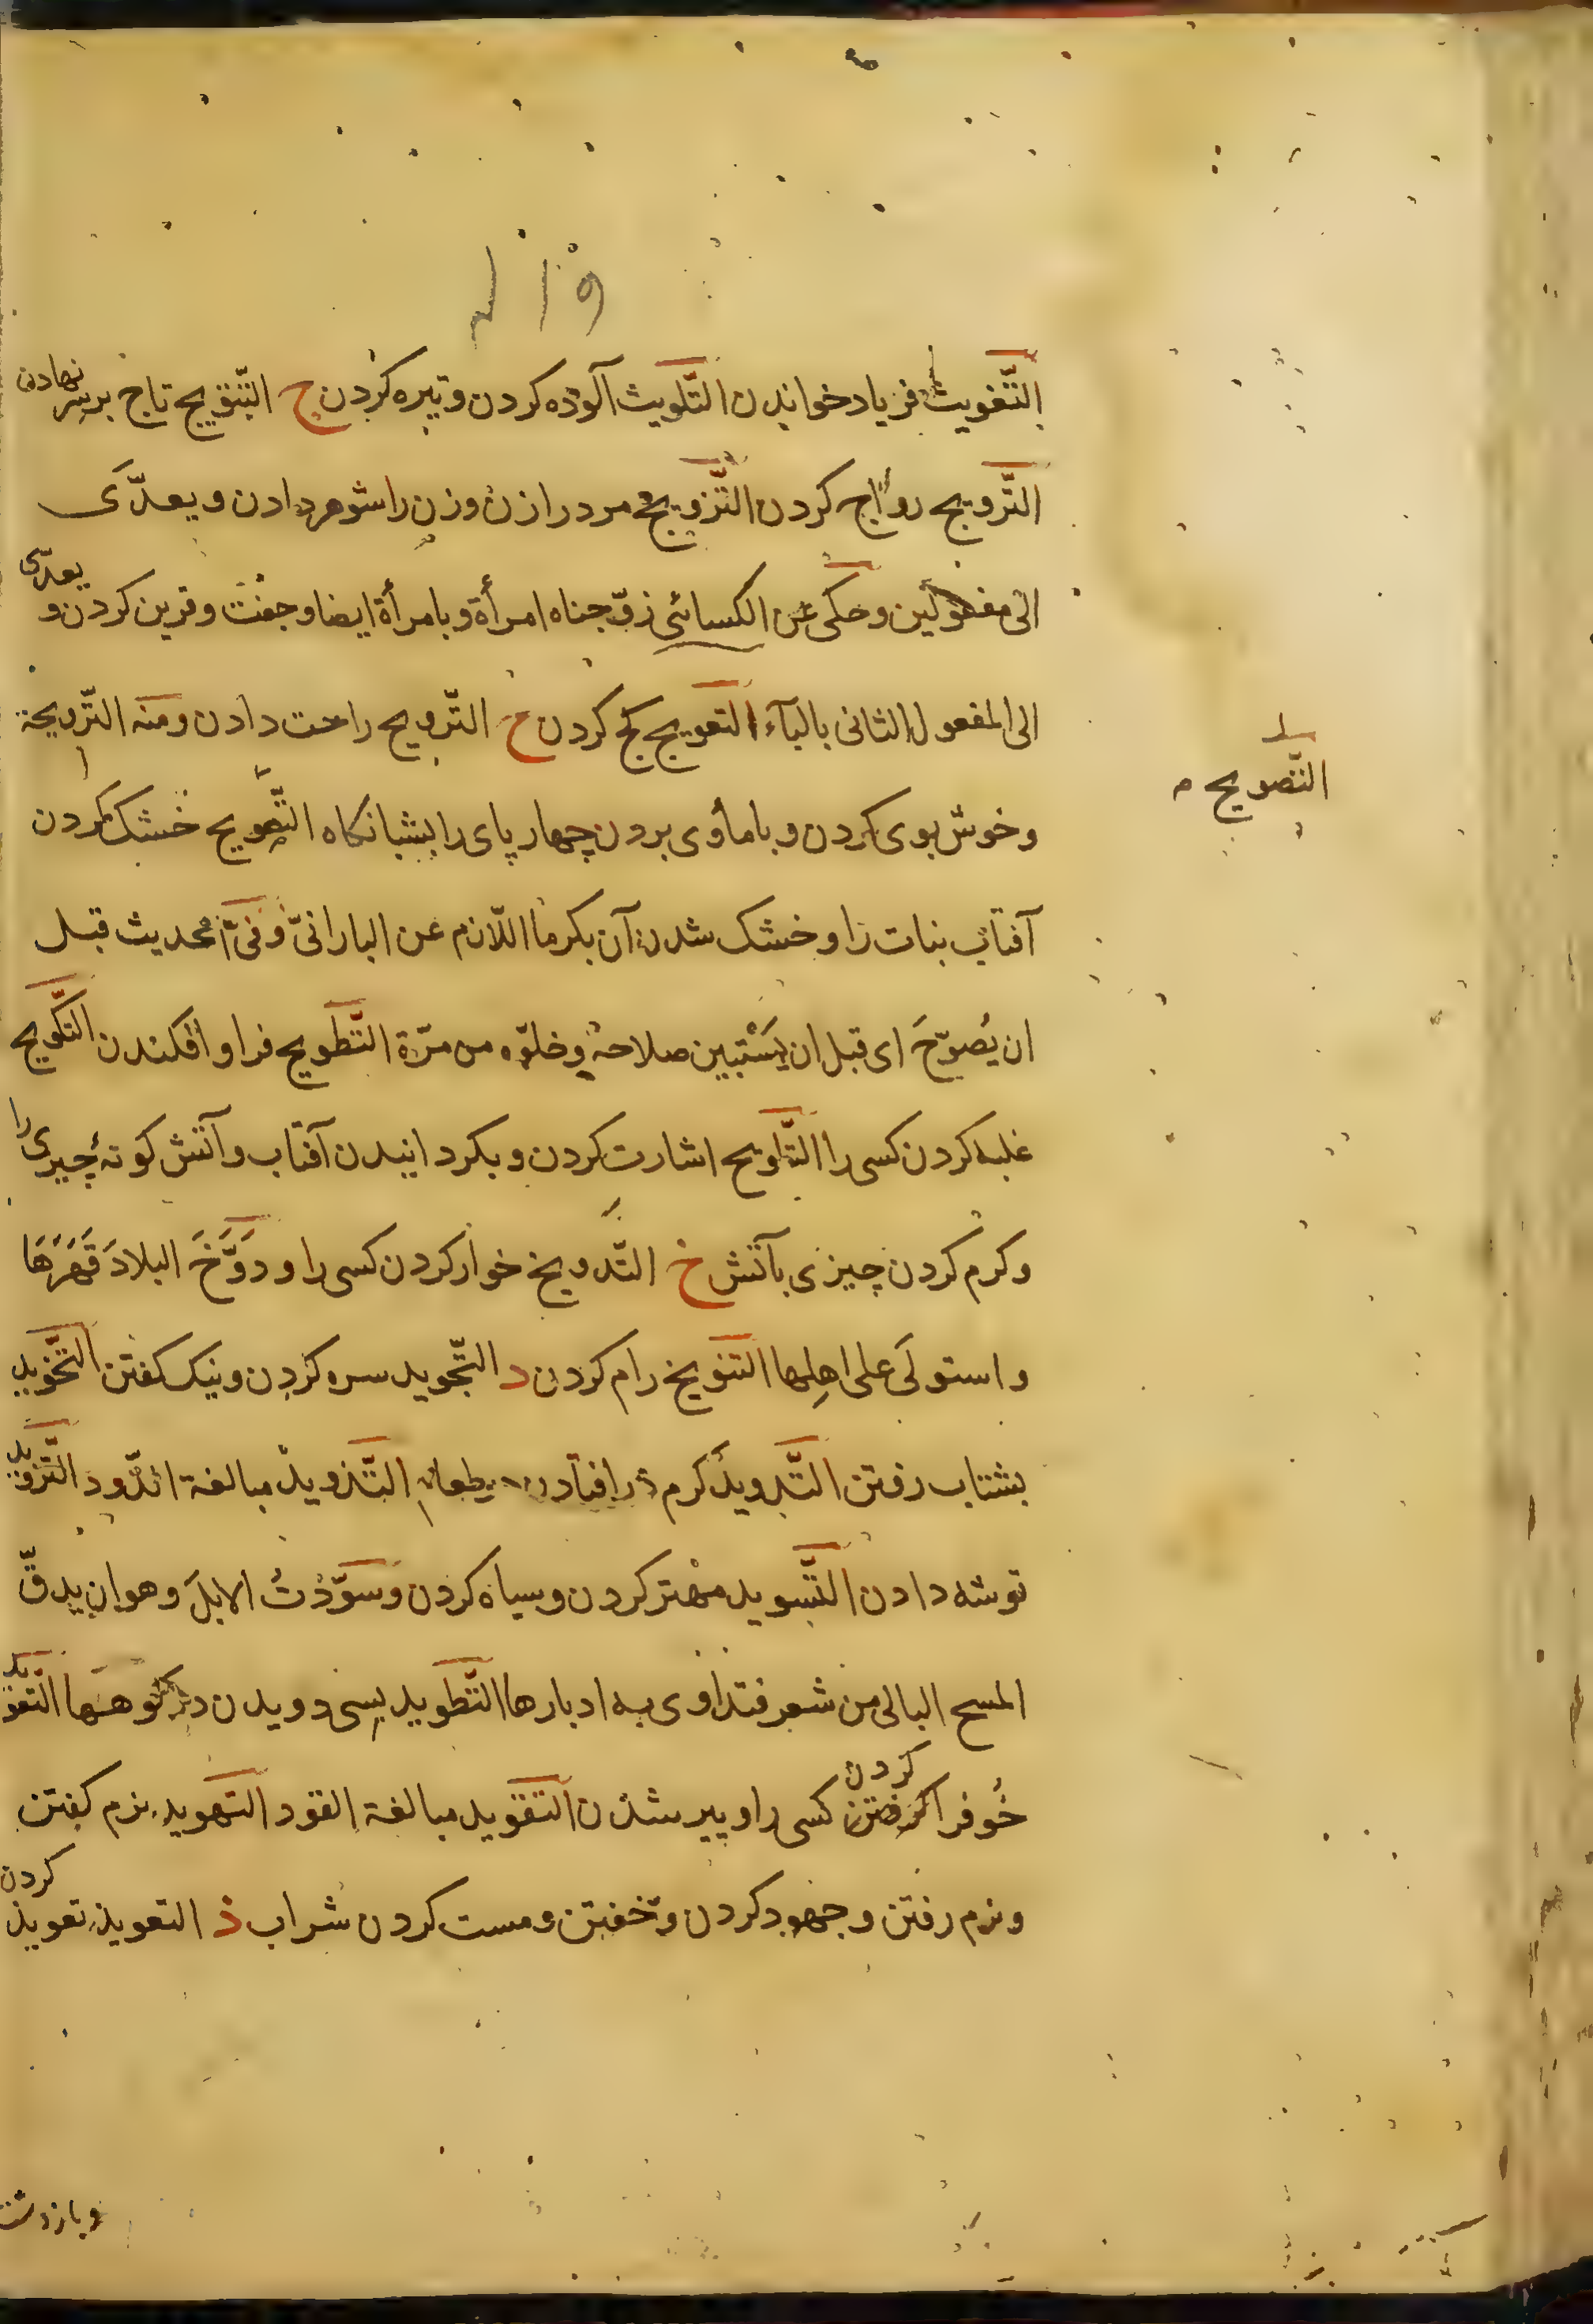 التَّغويث فریاد خواندن التَّلويث آلوده کردن و تیره کردن ج التَّتويج تاج بر سر نهادن
التَّرويج رواج کردن التَّزويج مرد را زن و زن را شوهر دادن و يعدّى
الى مفعولين و حكى عن الكسائى زوّجناه امرأة و بامرأة ايضا و جفت و قرین کردن و يعدّى
الى المفعول الثانى بالبآء التعويج کج کردن ح التّرويح راحت دادن و منه التّرويحة
و خوش بوی کردن و با مأوی بردن چهار پای را بشبانکاه التَّصويح خشک کردن
التَّصويح
آفتاب نبات را و خشک شدن آن بکرما اللّازم عن البارانىّ و فى الحديث قبل
ان يُصوّحَ اى قبل ان يَسْتبين صلاحه و خلوّه من مرّة التَّطويح فرا و افکندن التَّكويح
غلبه کردن کسی را التَّلويح اشارت کردن و بکردانیدن آفتاب و آتش کونهٔ چیزی را
و کرم کردن چیزی بآتش خ التَّدويخ خوار کردن کسی را و دَوَّخَ البلادَ قَهَرَهَا
و استولَى على اهلها التنويخ رام کردن د التَّجويد سره کردن و نیک کفتن التَّخويد
بشتاب رفتن التَّدويد کرم در افتادن بطعام التَّذويد مبالغة الذّود التَّزويد
توشه دادن التَّسويد مهتر کردن و سیاه کردن و سَوَّدْتُ الابلَ و هو ان يدقّ
المسح البالى من شعر فتداوى به ادبارها التَّطويد بسی دویدن در کوهها التَّعويد
خو فرا کردن کسی را و پیر شدن التَّقويد مبالغة القود التَّهويد نرم کفتن
و نرم رفتن و جهود کردن و خفتن و مست کردن شراب ذ التعويذ تعويذ کردن
و بازداشتن